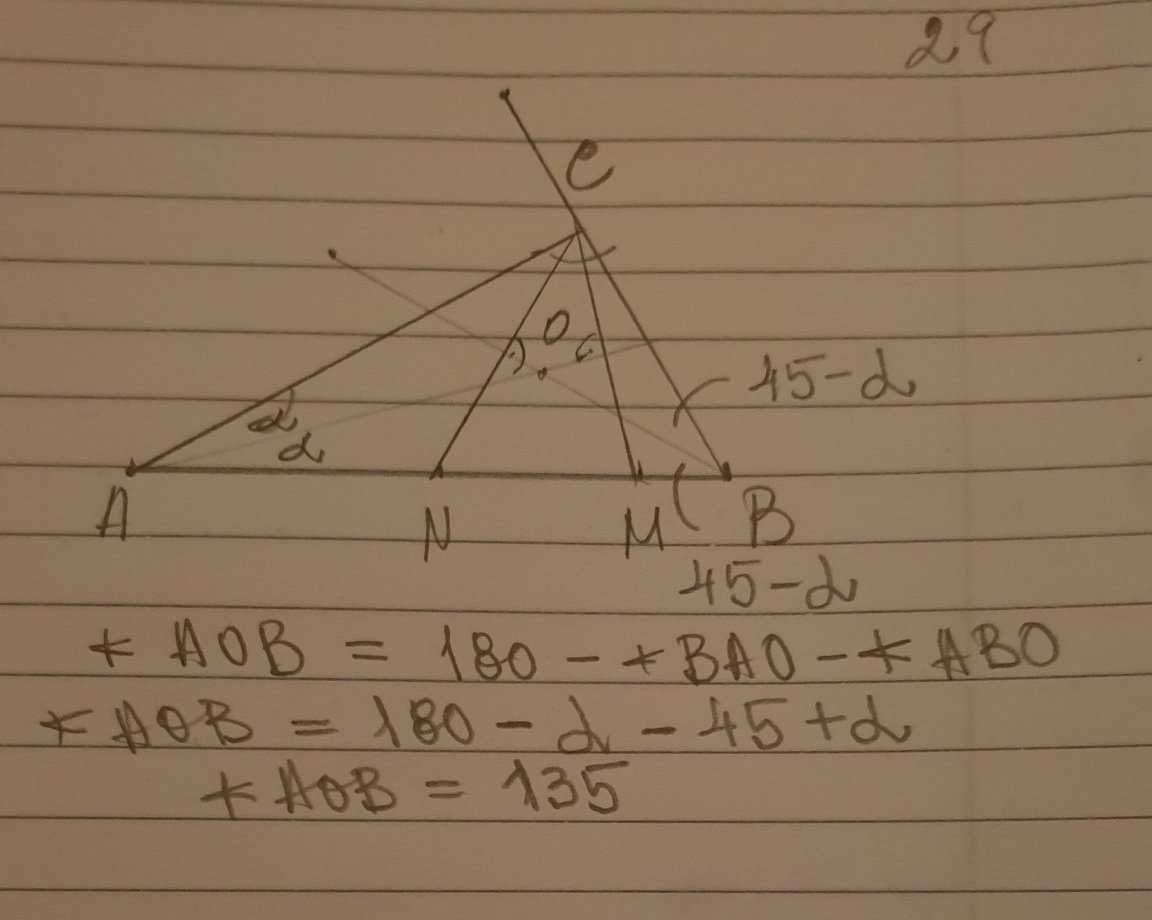 29
C
O
45-α
α
α
A
N
M
B
45-α
∢ AOB = 180 - ∢BAO - ∢ ABO
∢ AOB = 180 - α - 45 + α
∢ AOB = 135